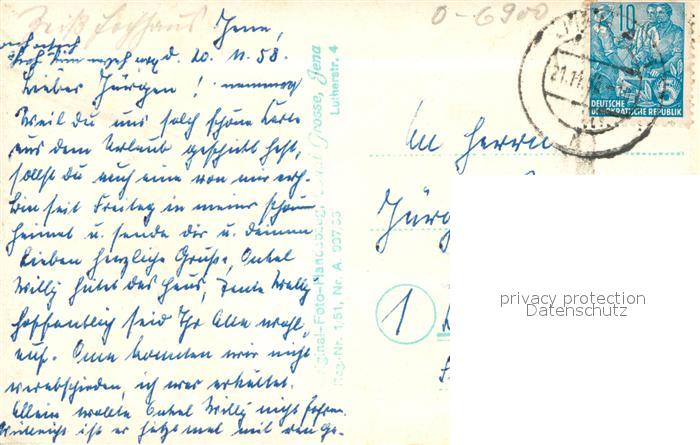 Zeiß Hochhaus
O-6900
Jena,
d. 20. 11. 58.
Lieber Jürgen!
Weil du uns solch schöne Karte
aus dem Urlaub geschickt hast,
sollst du auch eine von mir
Bin seit Freitag in meiner schönen
Heimat u. sende dir u. deinen
Lieben herzliche Grüße, Onkel
Willy hütet das Haus, Tante Wally
Hoffentlich seid Ihr Alle wohl,
auf. Oma konnten wir nicht
verabschieden, ich war erkältet.
Allein wollte Onkel Willy nicht fahren.
Vielleicht ist er jetzt mal mit den Ge-
Original-Foto-Handabzug Grosse, Jena
Lutherstr. 4
Reg.-Nr. 1/51, Nr. A 937/58
10
DEUTSCHE
DEMOKRATISCHE REPUBLIK
5
21.11.
An Herrn
Jürg
1
privacy protection
Datenschutz